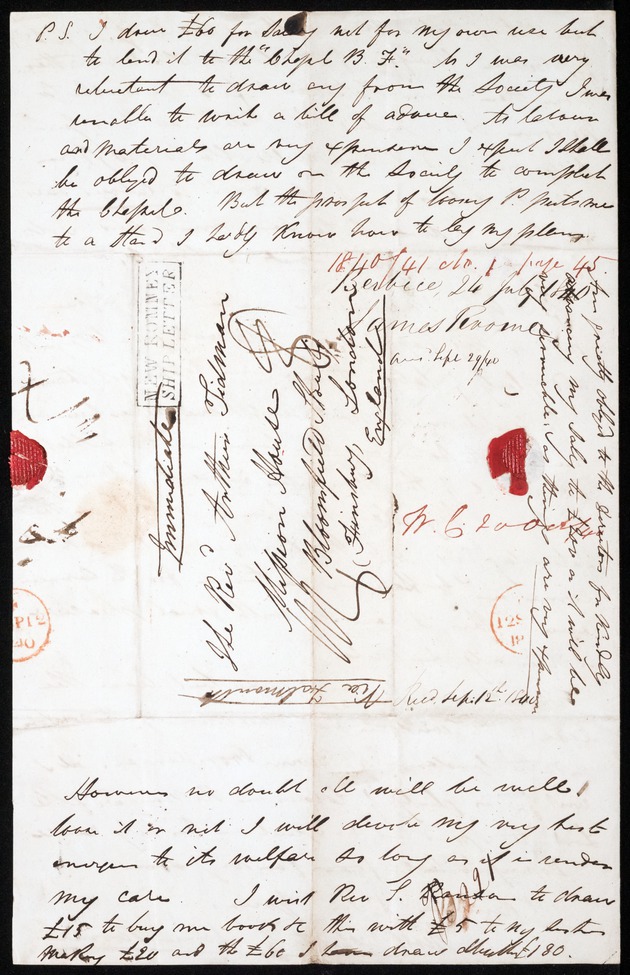 P.S. I draw £60 for Socy not for my own use but
to lend it to the "Chapel B. F." As I was very
reluctant to draw any from the Society I was
unable to write a bill of advice. As labour
and materials are very expensive I expect I shall
be obliged to draw on the Society to complete
the Chapel. But the prospect of loosing P. puts me
to a stand I hardly know how to lay my plans
1840/41 No. 1 page 45.
Berbice, 24 July 1840
James Roome
ans Sept 29/40
NEW ROMNEY
SHIP LETTER
Immediate
The Revd Arthur Tidman
Mission House
Bloomfield Street
Finsbury, London
England
Via Falmouth
I am greatly obliged to the Directors for kindly
advancing my Salary to £ as it will be
very serviceable, as things are very expensive
W. C. 20 Oct
Recd Sep. 12th 1840
However no doubt all will be well
loose it or not I will devote my very best
energies to its welfare so long as it is under
my care. I wish Rev S. to draw
£15 to buy me books &c this with £5 to my
making £20 and the £60 I draw 180.